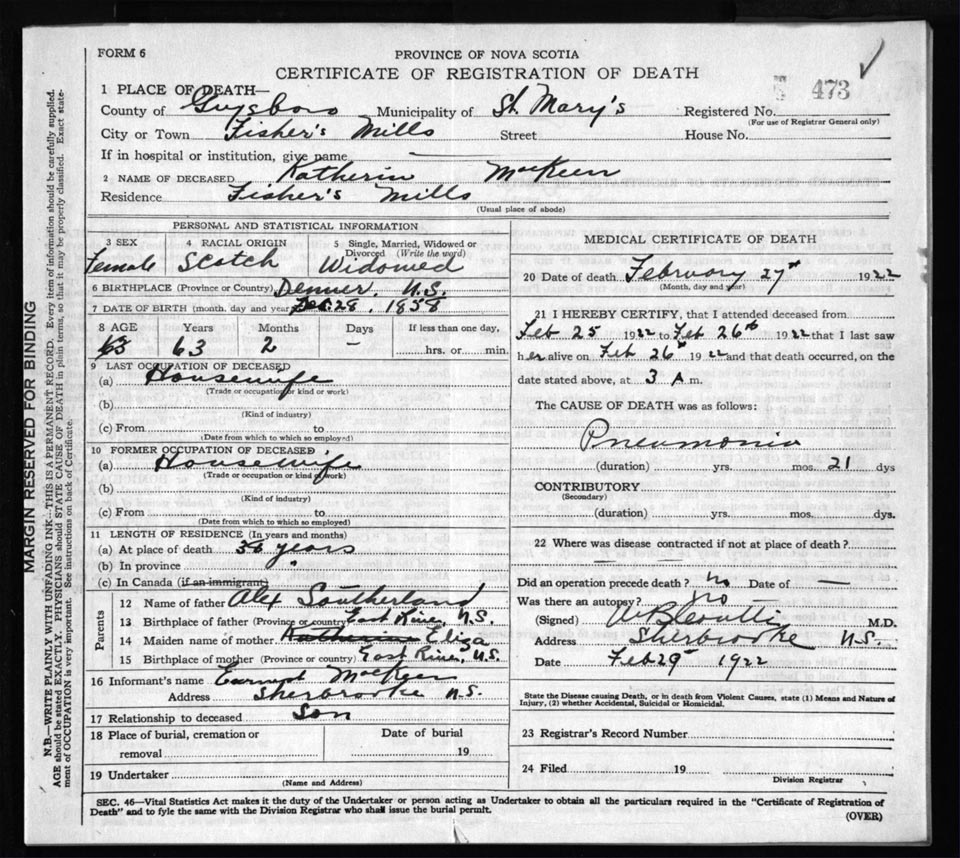 FORM 6
PROVINCE OF NOVA SCOTIA
CERTIFICATE OF REGISTRATION OF DEATH
1 PLACE OF DEATH—
473
County of Guysboro Municipality of St. Mary's Registered No.
(For use of Registrar General only)
City or Town Fisher's Mills Street House No.
If in hospital or institution, give name —
2 NAME OF DECEASED Katherin MacKeen
Residence Fisher's Mills
(Usual place of abode)
PERSONAL AND STATISTICAL INFORMATION
3 SEX 4 RACIAL ORIGIN 5 Single, Married, Widowed or Divorced (Write the word)
Female Scotch Widowed
6 BIRTHPLACE (Province or Country) Denver, N.S.
7 DATE OF BIRTH (month, day and year) Dec 28, 1858
8 AGE Years Months Days If less than one day,
63 63 2 — hrs. or min.
9 LAST OCCUPATION OF DECEASED
(a) Housewife
(Trade or occupation or kind or work)
(b)
(Kind of industry)
(c) From to
(Date from which to which so employed)
10 FORMER OCCUPATION OF DECEASED
(a) Housewife
(Trade or occupation or kind of work)
(b)
(Kind of industry)
(c) From to
(Date from which to which so employed)
11 LENGTH OF RESIDENCE (In years and months)
(a) At place of death 36 years
(b) In province "
(c) In Canada (if an immigrant)
Parents
12 Name of father Alex Southerland
13 Birthplace of father (Province or country) East River, N.S.
14 Maiden name of mother Katherine Eliza
15 Birthplace of mother (Province or country) East River, N.S.
16 Informant's name Earnest MacKeen
Address Sherbrooke N.S.
17 Relationship to deceased Son
18 Place of burial, cremation or removal
Date of burial
19
19 Undertaker
(Name and Address)
MEDICAL CERTIFICATE OF DEATH
20 Date of death February 27th 1922
(Month, day and year)
21 I HEREBY CERTIFY, that I attended deceased from
Feb 25 1922 to Feb 26th 1922 that I last saw
her alive on Feb 26th 1922 and that death occurred, on the
date stated above, at 3 A m.
The CAUSE OF DEATH was as follows:
Pneumonia
(duration) yrs. mos. 21 dys
CONTRIBUTORY
(Secondary)
(duration) yrs. mos. dys.
22 Where was disease contracted if not at place of death?
Did an operation precede death? No Date of —
Was there an autopsy? No
(Signed) M.D.
Address Sherbrooke N.S.
Date Feb 29th 1922
State the Disease causing Death, or in death from Violent Causes, state (1) Means and Nature of Injury, (2) whether Accidental, Suicidal or Homicidal.
23 Registrar's Record Number
24 Filed 19
Division Registrar
SEC. 46—Vital Statistics Act makes it the duty of the Undertaker or person acting as Undertaker to obtain all the particulars required in the "Certificate of Registration of
Death" and to fyle the same with the Division Registrar who shall issue the burial permit.
(OVER)
MARGIN RESERVED FOR BINDING
N.B.—WRITE PLAINLY WITH UNFADING INK—THIS IS A PERMANENT RECORD. Every item of information should be carefully supplied.
AGE should be stated EXACTLY. PHYSICIANS should STATE CAUSE OF DEATH in plain terms, so that it may be properly classified. Exact state-
ment of OCCUPATION is very important. See instructions on back of Certificate.